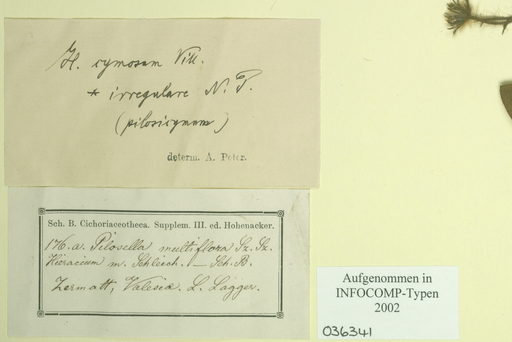 H. cymosum Vill.
* irregulare N. P.
(pilosicymum)
determ. A. Peter.
Sch. B. Cichoriaceotheca. Supplem. III. ed. Hohenacker.
176. a. Pilosella multiflora Sz. Sz.
Hieracium m. Schleich. — Sch. B.
Zermatt, Valesia. L. Lagger.
Aufgenommen in
INFOCOMP-Typen
2002
036341